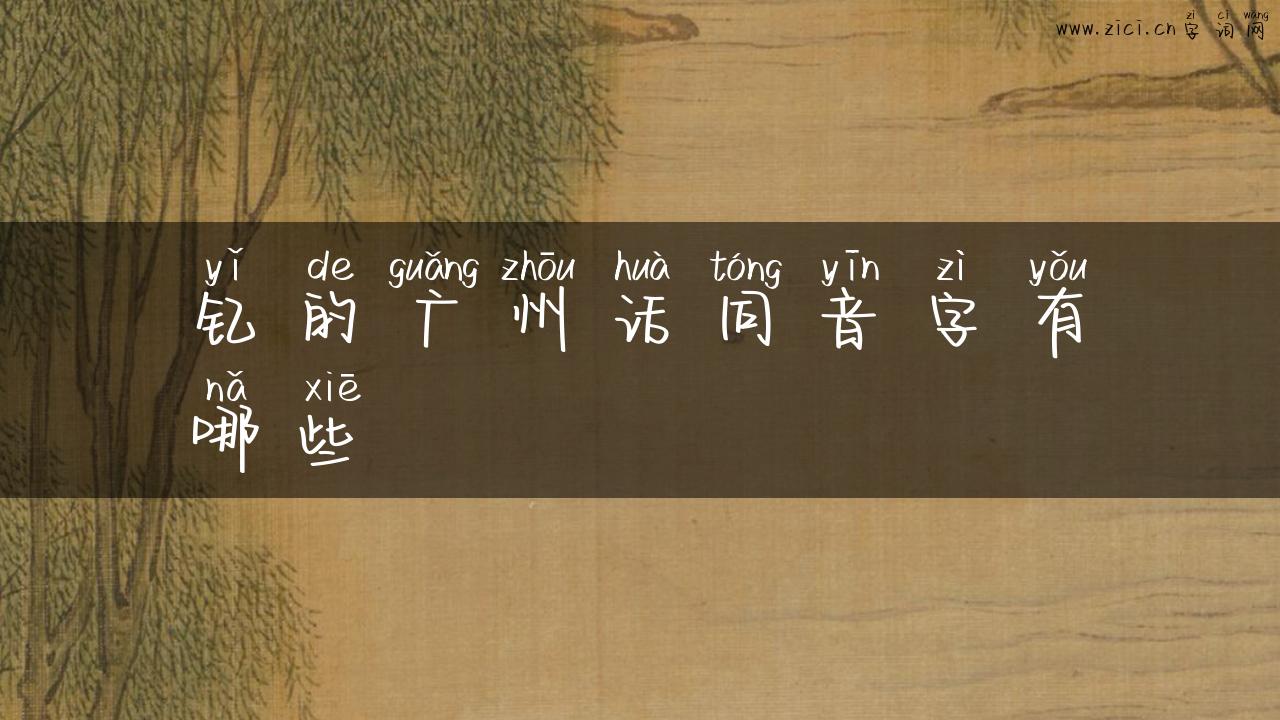 zì cí wǎng
www.zici.cn字词网
yǐ de guǎng zhōu huà tóng yīn zì yǒu
钇的广州话同音字有
nǎ xiē
哪些